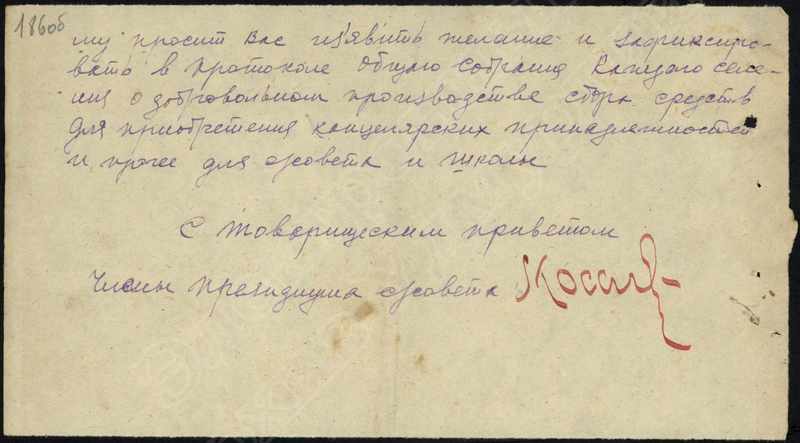 186об
му просит Вас изъявить желание и зафиксиро-
вать в протоколе Общаго Собрания Каждаго селе-
ния о добровольном производстве сбора средств
для приобретения канцелярских принадлежностей
и проче для с/совета и школы
С товарищеским приветом
Члены президиума с/совета